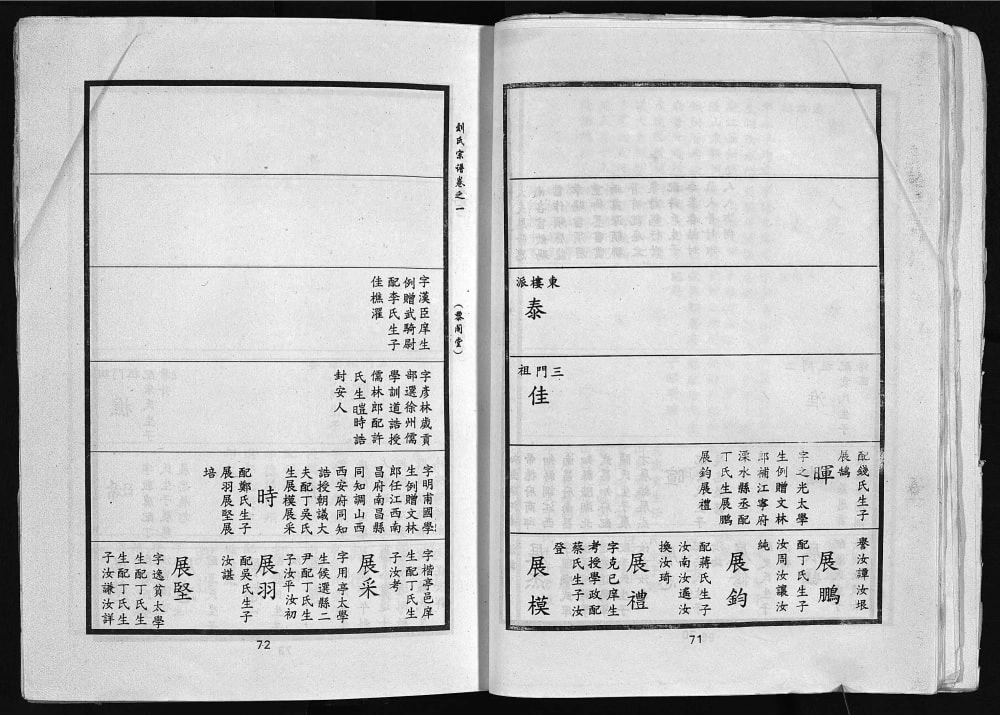 東樓派
泰
三門祖
佳
配錢氏生子
展鵠
暉
字之光太學
生例贈文林
郎補江寧府
溧水縣丞配
丁氏生展鵬
展鈞展禮
譽汝譚汝垠
展鵬
配丁氏生子
汝周汝讓汝
純
展鈞
配蔣氏生子
汝南汝遙汝
換汝琦
展禮
字克已庠生
考授學政配
蔡氏生子汝
登
展模
71
刘氏宗谱卷之一
(黎阁堂)
字漢臣庠生
例贈武騎尉
配李氏生子
佳樵濯
字彥林歲貢
部選徐州儒
學訓道誥授
儒林郎配許
氏生暟時誥
封安人
字明甫國學
生例贈文林
郎任江西南
昌府南昌縣
同知調山西
西安府同知
誥授朝議大
夫配丁吳氏
生展模展采
時
配鄭氏生子
展羽展堅展
培
字楷亭邑庠
生配丁氏生
子汝考
展采
字用亭太學
生候選縣二
尹配丁氏生
子汝平汝初
展羽
配吳氏生子
汝諶
展堅
字逸貧太學
生配丁氏生
生配丁氏生
子汝謙汝詳
72